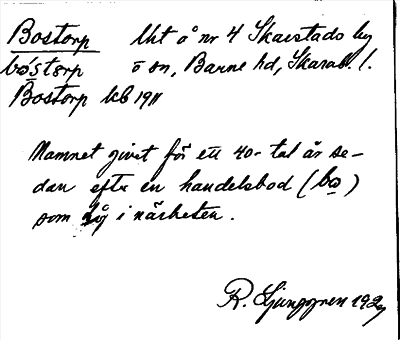 Bostorp Uht å nr 4 Skarstads by
bo̤storp ö sn, Barne hd, Skarab. l.
Bostorp kb 1911
Namnet givet för ett 40-tal år se-
dan efter en handelsbod (bo)
som låg i närheten.
R. Ljunggren 192